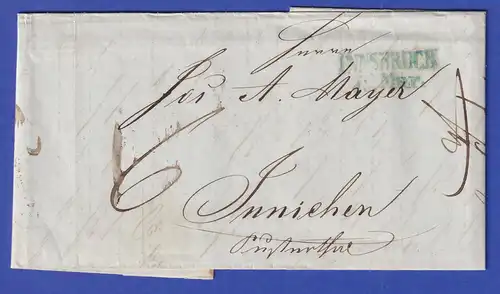 Herrn
INNSBRUCK
Jos A. Mayer
6
Innichen
Pusterthal